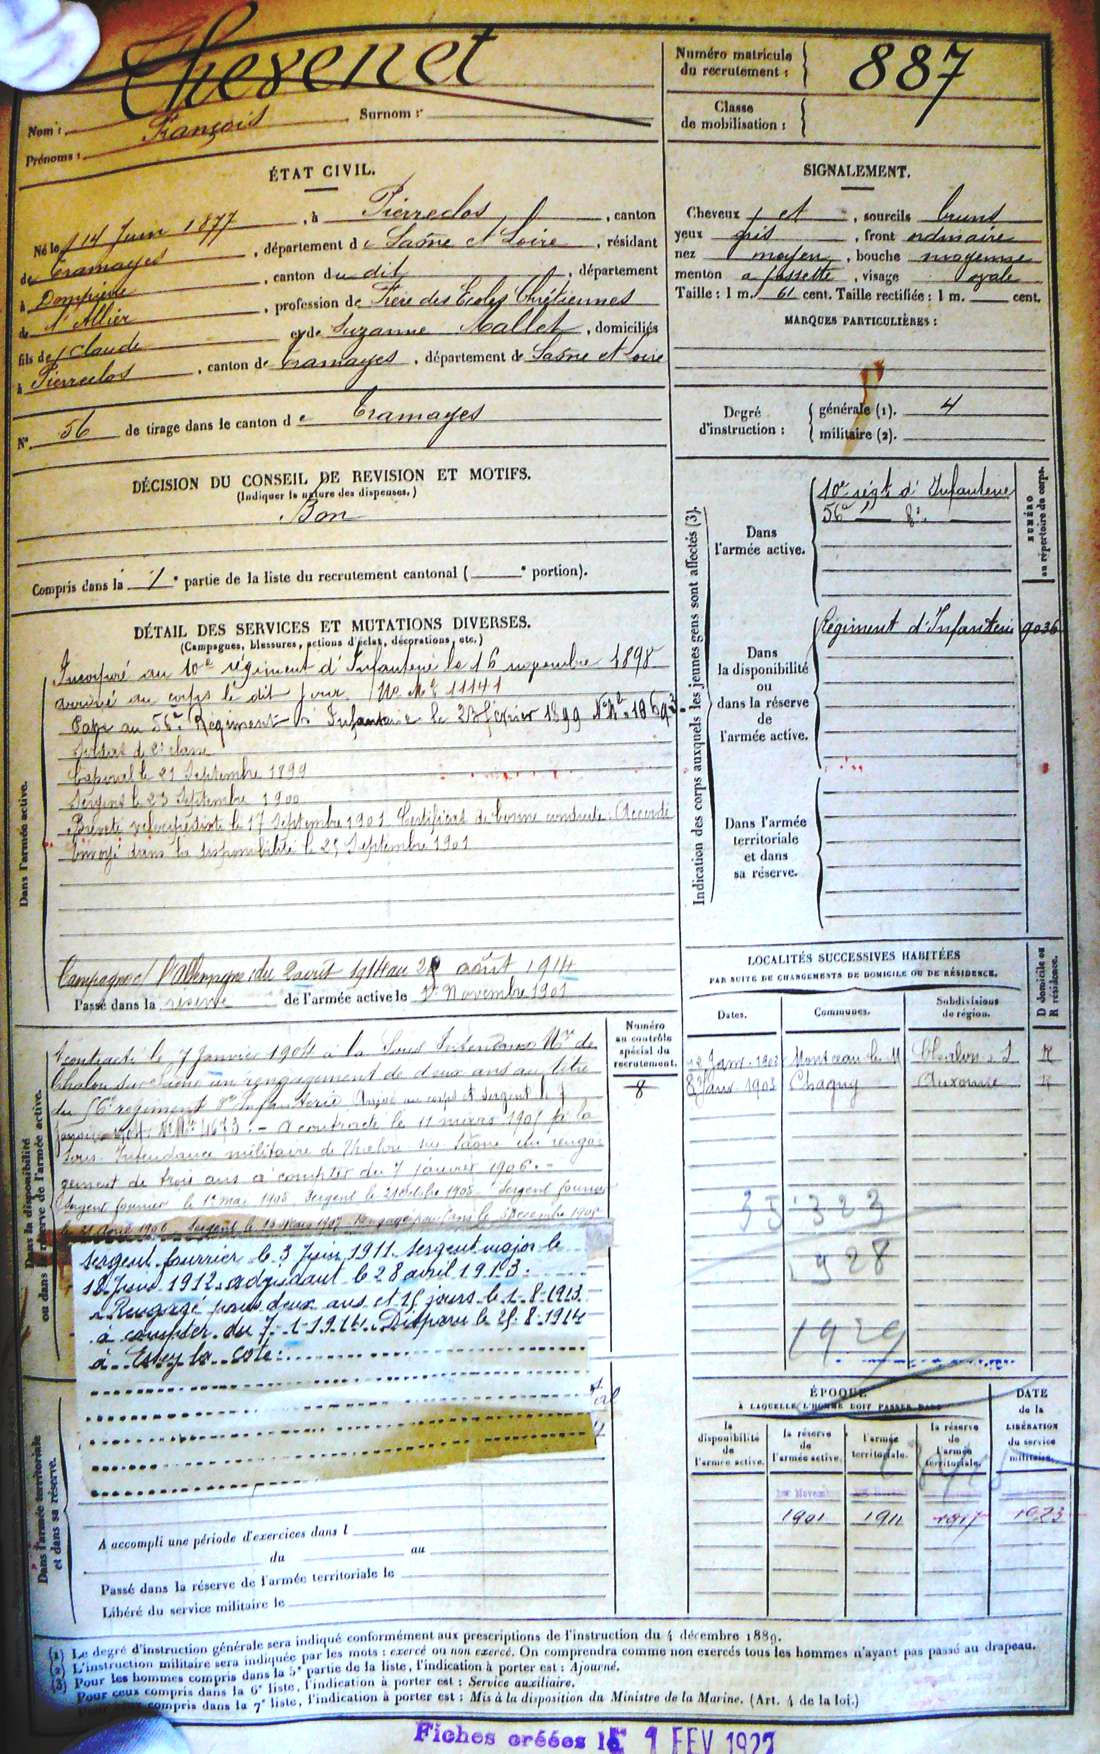 Nom : Thevenet Surnom :
Prénoms : François
Numéro matricule du recrutement : 887
Classe de mobilisation :
ÉTAT CIVIL.
Né le 14 Juin 1877, à Pierreclos, canton
de Tramayes, département de Saône et Loire, résidant
à Dompierre, canton du dit, département
de l'Allier, profession de Frère des Ecoles Chrétiennes
fils de Claude et de Suzanne Mallet, domiciliés
à Pierreclos, canton de Tramayes, département de Saône et Loire
N° 56 de tirage dans le canton de Tramayes
SIGNALEMENT.
Cheveux et, sourcils bruns
yeux gris, front ordinaire
nez moyen, bouche moyenne
menton à fossette, visage ovale
Taille : 1 m. 61 cent. Taille rectifiée : 1 m. cent.
MARQUES PARTICULIÈRES :
Degré d'instruction : générale (1). 4
militaire (2).
DÉCISION DU CONSEIL DE REVISION ET MOTIFS.
(Indiquer la nature des dispenses.)
Bon
Compris dans la 1e partie de la liste du recrutement cantonal ( e portion).
DÉTAIL DES SERVICES ET MUTATIONS DIVERSES.
(Campagnes, blessures, actions d'éclat, décorations, etc.)
Dans l'armée active.
Incorporé au 10e régiment d'Infanterie le 16 novembre 1898
arrivé au corps le dit jour. No Mle 11141
Passé au 56e Régiment d'Infanterie le 23 février 1899 No Mle
Soldat de 2e classe
Caporal le 21 Septembre 1899
Sergent le 23 Septembre 1900
Breveté vélocipédiste le 17 Septembre 1901 Certificat de bonne conduite : Accordé
Envoyé dans la disponibilité le 25 Septembre 1901
Campagne c/ l'Allemagne du 2 août 1914 au août 1914
Passé dans la réserve de l'armée active le 1er Novembre 1901
Indication des corps auxquels les jeunes gens sont affectés (3).
NUMÉRO au répertoire du corps.
Dans l'armée active.
10e régt d'Infanterie
56e " d°
Dans la disponibilité ou dans la réserve de l'armée active.
Régiment d'Infanterie 9036
Dans l'armée territoriale et dans sa réserve.
LOCALITÉS SUCCESSIVES HABITÉES
PAR SUITE DE CHANGEMENTS DE DOMICILE OU DE RÉSIDENCE.
Dates. Communes. Subdivisions de région. D domicile ou R résidence.
Janv. 1902 Montceau-les-M Chalon s S R
8 Janv 1903 Chagny Auxonne R
35 323
928
1929
Dans la disponibilité ou dans la réserve de l'armée active.
Numéro au contrôle spécial du recrutement.
8
A contracté le 7 Janvier 1904 à la Sous Intendance Mre de
Chalon sur Saône un rengagement de deux ans au titre
du 56e régiment d'Infanterie Arrivé au corps et sergent le 7
janvier 1904. No Mle 4673. - A contracté le 11 mars 1905 à la
Sous-Intendance militaire de Chalon sur Saône un renga-
gement de trois ans à compter du 7 janvier 1906. -
Sergent fourrier le 1er Mai 1905. Sergent le 21 octobre 1905. Sergent fourrier
Sergent fourrier le 3 Juin 1911. Sergent major le
18 Juin 1912. adjudant le 28 avril 1913.
Rengagé pour deux ans et 25 jours le 1-8-1913.
à compter du 7-1-1914. Disparu le 25-8-1914
à Essey la Côte.
Dans l'armée territoriale et dans sa réserve.
A accompli une période d'exercices dans l
du au
Passé dans la réserve de l'armée territoriale le
Libéré du service militaire le
ÉPOQUE
À LAQUELLE L'HOMME DOIT PASSER DANS
la disponibilité de l'armée active. la réserve de l'armée active. l'armée territoriale. la réserve de l'armée territoriale.
DATE de la LIBÉRATION du service militaire.
1901 1911 1917 1923
(1) Le degré d'instruction générale sera indiqué conformément aux prescriptions de l'instruction du 4 décembre 1889.
(2) L'instruction militaire sera indiquée par les mots : exercé ou non exercé. On comprendra comme non exercés tous les hommes n'ayant pas passé au drapeau.
(3) Pour les hommes compris dans la 5e partie de la liste, l'indication à porter est : Ajourné.
Pour ceux compris dans la 6e liste, l'indication à porter est : Service auxiliaire.
Pour ceux compris dans la 7e liste, l'indication à porter est : Mis à la disposition du Ministre de la Marine. (Art. 4 de la loi.)
Fiches créées le 1 FEV 1927